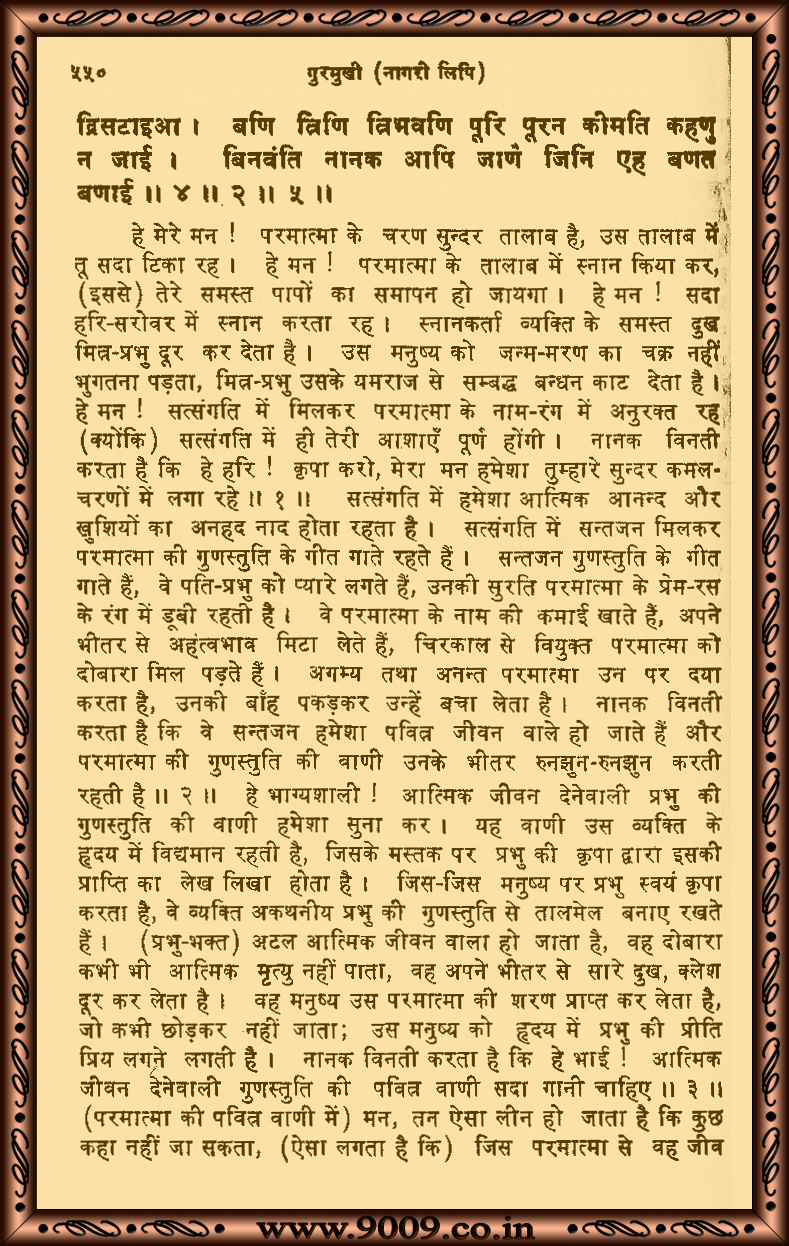 ५५० गुरमुखी (नागरी लिपि)
द्रिसटाइआ । बणि त्रिणि त्रिभवणि पूरि पूरन कीमति कहणु
न जाई । बिनवंति नानक आपि जाणै जिनि एह बणत
बणाई ॥ ४ ॥ २ ॥ ५ ॥
हे मेरे मन ! परमात्मा के चरण सुन्दर तालाब है, उस तालाब में
तू सदा टिका रह । हे मन ! परमात्मा के तालाब में स्नान किया कर,
(इससे) तेरे समस्त पापों का समापन हो जायगा । हे मन ! सदा
हरि-सरोवर में स्नान करता रह । स्नानकर्ता व्यक्ति के समस्त दुख
मित्र-प्रभु दूर कर देता है । उस मनुष्य को जन्म-मरण का चक्र नहीं
भुगतना पड़ता, मित्र-प्रभु उसके यमराज से सम्बद्ध बन्धन काट देता है ।
हे मन ! सत्संगति में मिलकर परमात्मा के नाम-रंग में अनुरक्त रह
(क्योंकि) सत्संगति में ही तेरी आशाएँ पूर्ण होंगी । नानक विनती
करता है कि हे हरि ! कृपा करो, मेरा मन हमेशा तुम्हारे सुन्दर कमल-
चरणों में लगा रहे ॥ १ ॥ सत्संगति में हमेशा आत्मिक आनन्द और
खुशियों का अनहद नाद होता रहता है । सत्संगति में सन्तजन मिलकर
परमात्मा की गुणस्तुति के गीत गाते रहते हैं । सन्तजन गुणस्तुति के गीत
गाते हैं, वे पति-प्रभु को प्यारे लगते हैं, उनकी सुरति परमात्मा के प्रेम-रस
के रंग में डूबी रहती है । वे परमात्मा के नाम की कमाई खाते हैं, अपने
भीतर से अहंत्वभाव मिटा लेते हैं, चिरकाल से वियुक्त परमात्मा को
दोबारा मिल पड़ते हैं । अगम्य तथा अनन्त परमात्मा उन पर दया
करता है, उनकी बाँह पकड़कर उन्हें बचा लेता है । नानक विनती
करता है कि वे सन्तजन हमेशा पवित्र जीवन वाले हो जाते हैं और
परमात्मा की गुणस्तुति की वाणी उनके भीतर रुनझुन-रुनझुन करती
रहती है ॥ २ ॥ हे भाग्यशाली ! आत्मिक जीवन देनेवाली प्रभु की
गुणस्तुति की वाणी हमेशा सुना कर । यह वाणी उस व्यक्ति के
हृदय में विद्यमान रहती है, जिसके मस्तक पर प्रभु की कृपा द्वारा इसकी
प्राप्ति का लेख लिखा होता है । जिस-जिस मनुष्य पर प्रभु स्वयं कृपा
करता है, वे व्यक्ति अकथनीय प्रभु की गुणस्तुति से तालमेल बनाए रखते
हैं । (प्रभु-भक्त) अटल आत्मिक जीवन वाला हो जाता है, वह दोबारा
कभी भी आत्मिक मृत्यु नहीं पाता, वह अपने भीतर से सारे दुख, क्लेश
दूर कर लेता है । वह मनुष्य उस परमात्मा की शरण प्राप्त कर लेता है,
जो कभी छोड़कर नहीं जाता; उस मनुष्य को हृदय में प्रभु की प्रीति
प्रिय लगने लगती है । नानक विनती करता है कि हे भाई ! आत्मिक
जीवन देनेवाली गुणस्तुति की पवित्र वाणी सदा गानी चाहिए ॥ ३ ॥
(परमात्मा की पवित्र वाणी में) मन, तन ऐसा लीन हो जाता है कि कुछ
कहा नहीं जा सकता, (ऐसा लगता है कि) जिस परमात्मा से वह जीव
www.9009.co.in